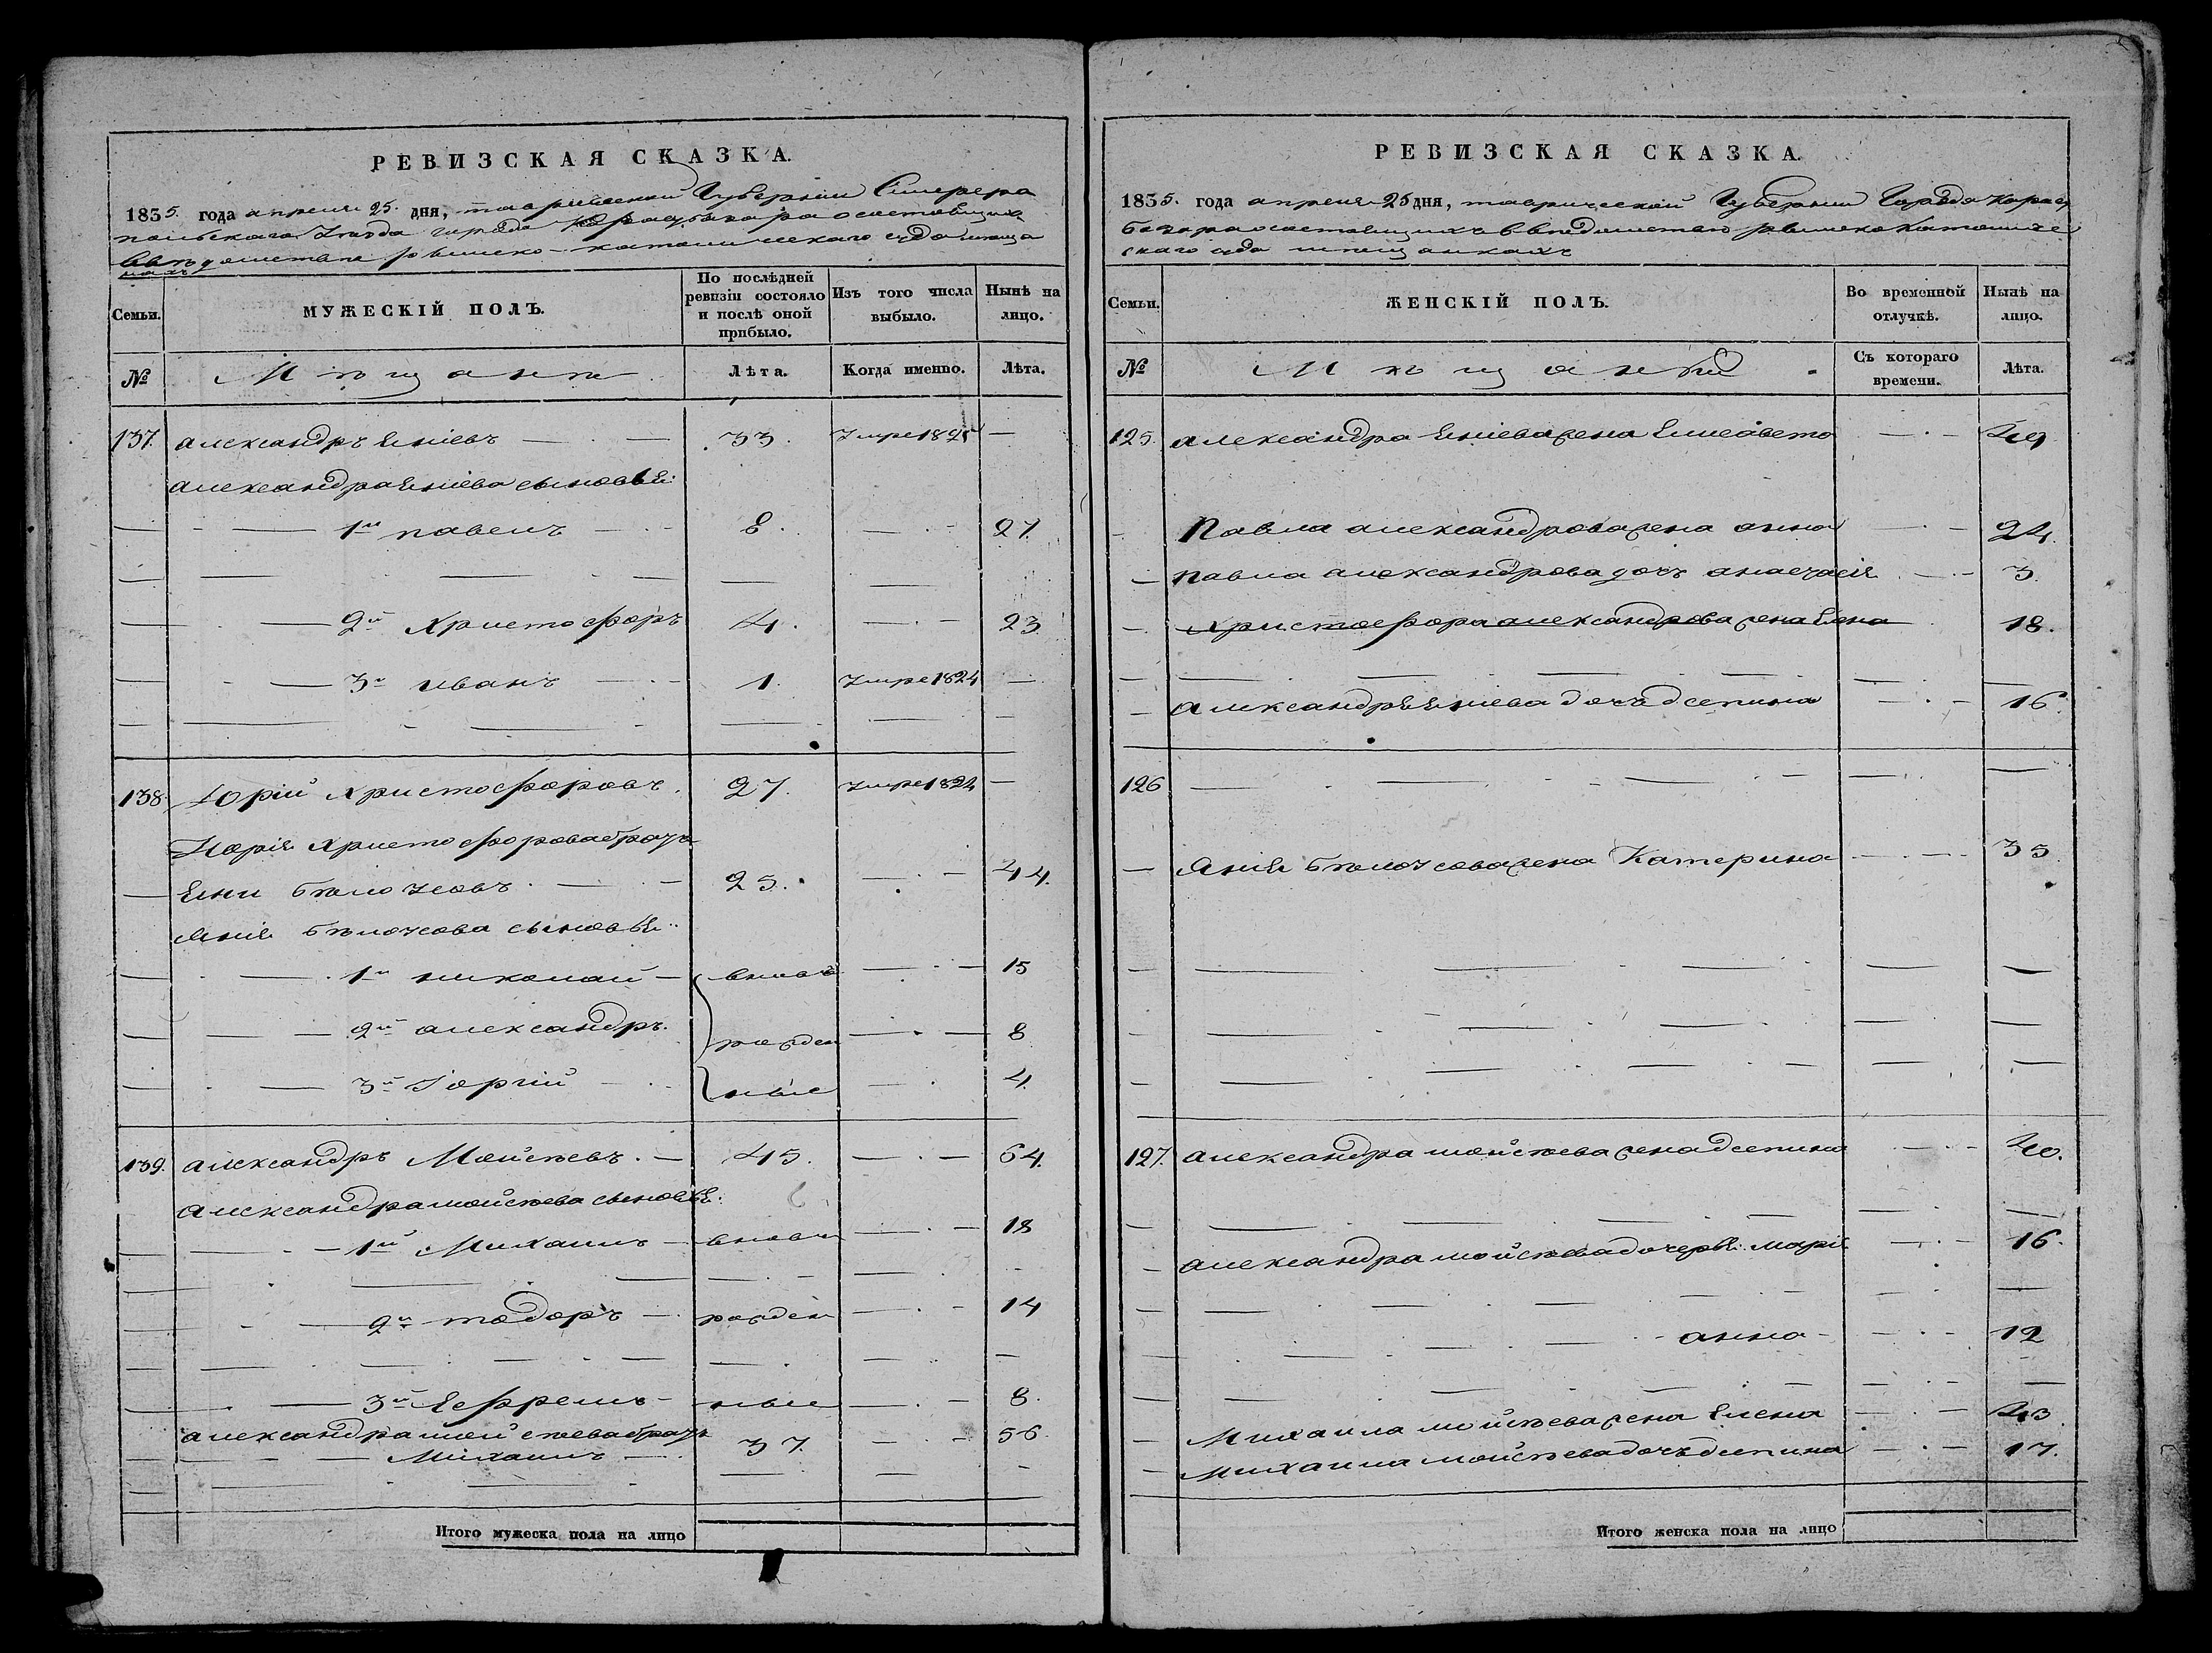 РЕВИЗСКАЯ СКАЗКА.
1835. года апреля 25. дня, таврической Губернии Симферо
польскаго Уезда города Карасубазара о состоящихъ
въ ведомстве римско-католическаго суда меща
нахъ
Семьи.
МУЖЕСКІЙ ПОЛЪ.
По послѣдней ревизіи состояло и послѣ оной прибыло.
Изъ того числа выбыло.
Нынѣ на лицо.
№
Мѣщане
Лѣта.
Когда именно.
Лѣта.
137. александръ Еніевъ — . — 33. Умре 1825 —
александра Еніева сыновья:
— - — 1й павелъ — . - 8. — . - 27.
— — — . — — —
— . — 2й Христофоръ 4. — . - 23.
— - — 3й иванъ — . - 1. Умре 1824 —
— — - — - — — —
138. Юрій Христофоровъ. 27. Умре 1824 —
Юрія Христофорова братъ
— Яни Белочсовъ . — . — 25. — . — 44.
Янія Белочсова сыновья:
— . — . 1й николай — вновь — . — 15
— — — 2й александръ. рожден — . — 8
— . — 3й Юргій — . - ные — . 4.
139. александръ Мойсѣевъ . — 45. — . — 64.
александра мойсѣева сыновья:
— — . - 1й Михаилъ — вновь — . — 18
— . — — — . — — . -
— - — 2й тодоръ — рожден — . - 14
— — . — . — . — — . — . —
— . — 3й Ефремъ - ные — . - 8.
александра мойсѣева братъ
— — - — Михаилъ — . 37. — . - 56.
— — - — . — — -
Итого мужеска пола на лицо
РЕВИЗСКАЯ СКАЗКА.
1835. года апреля 25 дня, таврической Губернии Города Карасу
базара о состоящихъ в ведомстве римско католиче
скаго суда мещанкахъ
Семьи.
ЖЕНСКІЙ ПОЛЪ.
Во временной отлучкѣ.
Нынѣ на лицо.
№
Мѣщанки
Съ котораго времени.
Лѣта.
125. александра Еніева жена Елисавета — . — 49
- Павла александрова жена анна — . — 24.
— павла александрова дочь анастасія. — . - 3.
— . Христофора александрова жена Елена . 18.
— — — — . — — —
— александра Еніева дочь дсепима — . - 16
126 — . — - — . — — —
— Янія Белочсова жена Катерина — . — . 35.
— — — — . — — —
— — . — — . — —
— — . — . — . — —
127. александра мойсѣева жена дсепима — . - 40.
— — . — . — — — . —
— александра мойсѣева дочери: марія — . — 16.
— — . — . — . — . — . —
— . — . — . — анна - — . - 12
— — . — . — . — — . — —
— Михаила мойсѣева жена Елена — . — 43
— Михаила мойсѣева дочь дсепима — . — 17.
Итого женска пола на лицо